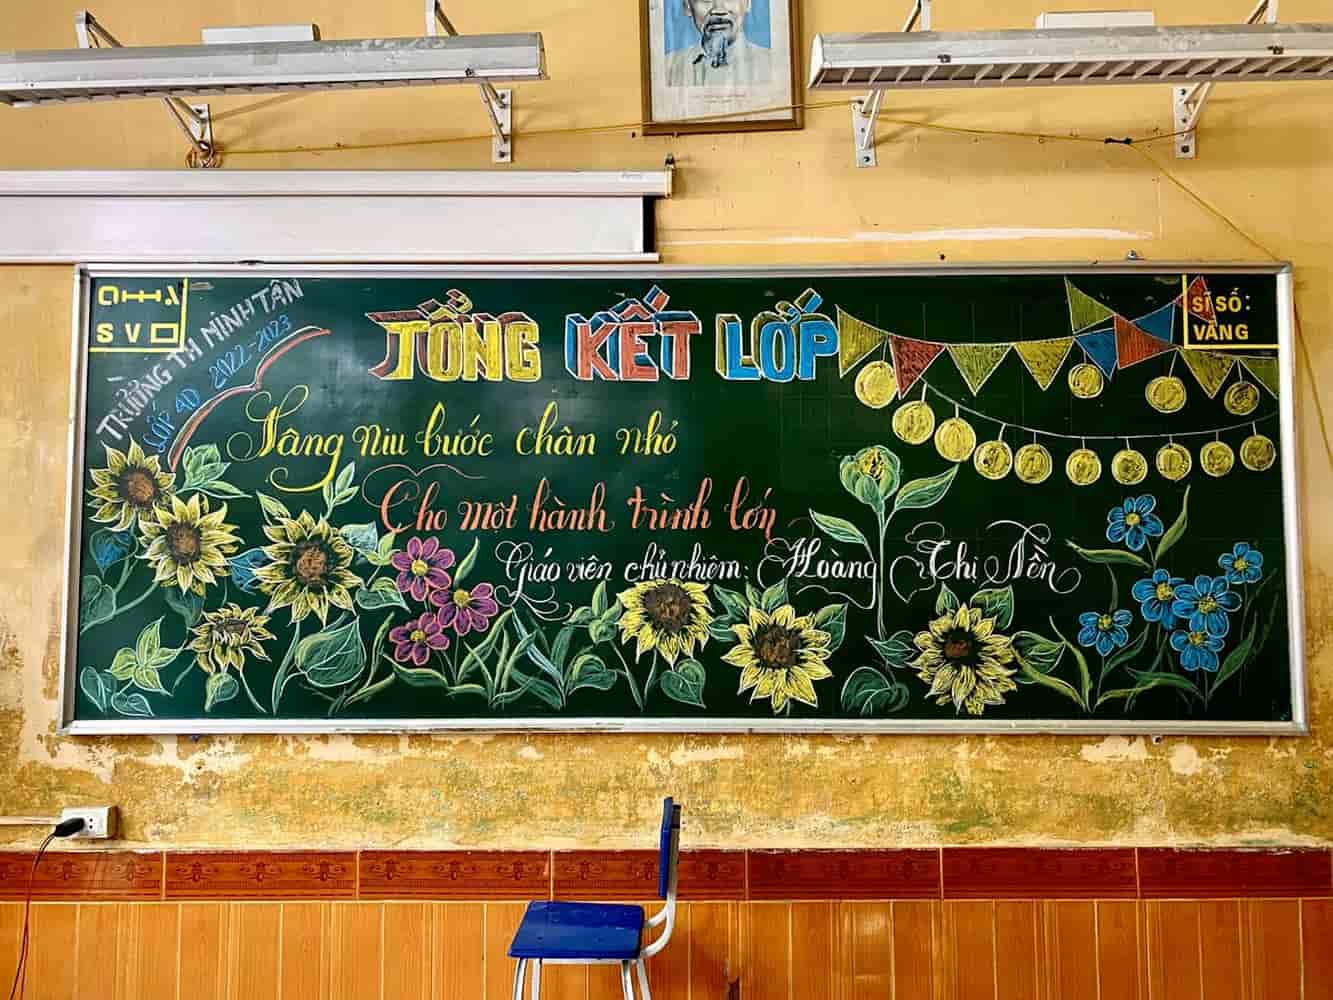 SV
TRƯỜNG TH MINH TÂN
LỚP 4D 2022-2023
TỔNG KẾT LỚP
SĨ SỐ:
VẮNG
Nâng niu bước chân nhỏ
Cho một hành trình lớn
Giáo viên chủ nhiệm: Hoàng Thị Nền